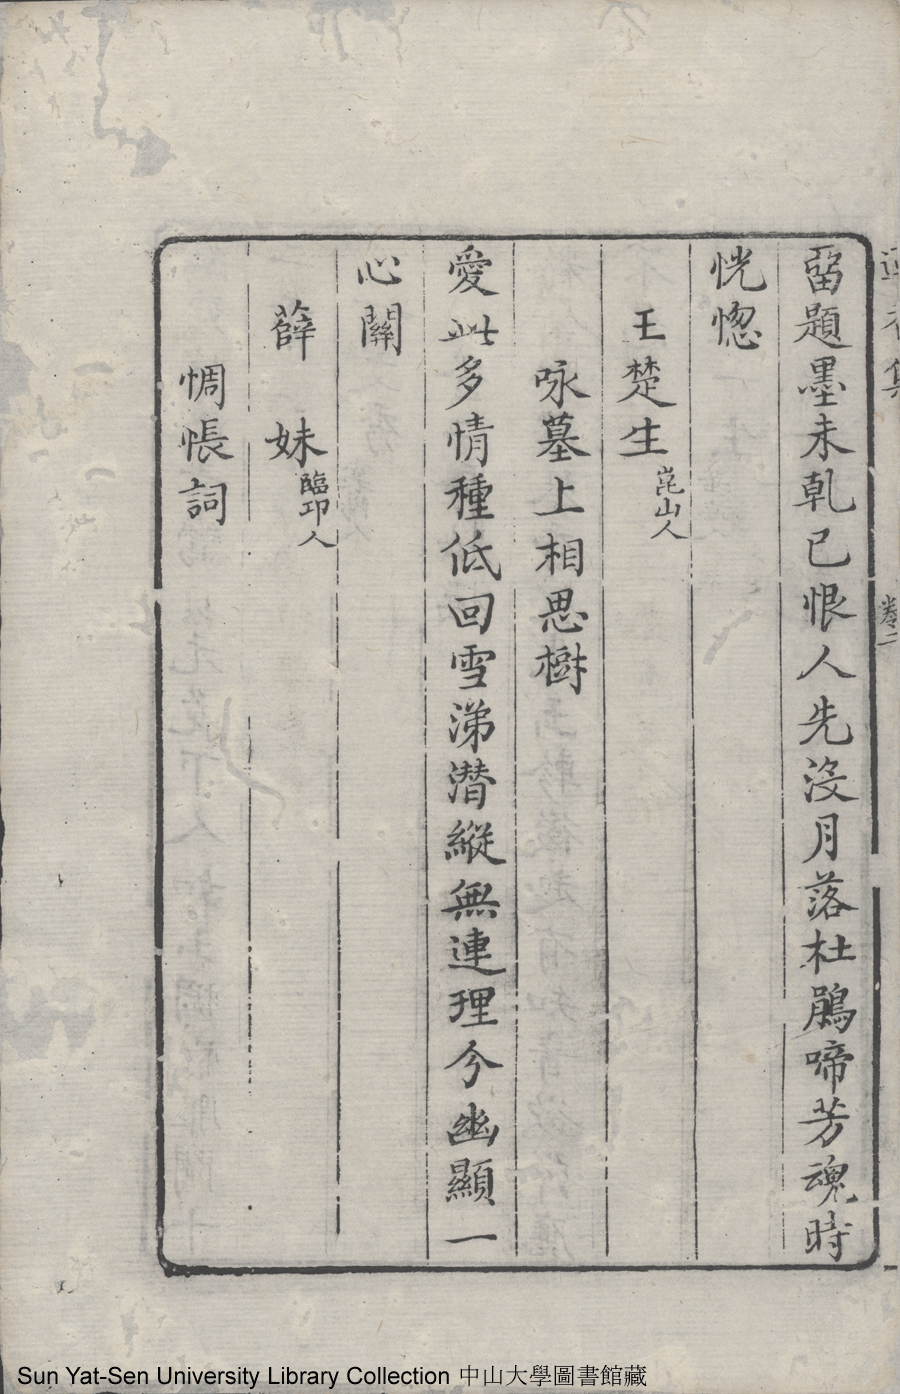 留題墨未乹已恨人先沒月落杜鵑啼芳魂時
恍惚
王楚生 崑山人
咏墓上相思樹
愛此多情種低回雪涕潜縱無連理今幽顯一
心關
薛 妹 臨邛人
惆悵詞
卷二
Sun Yat-Sen University Library Collection 中山大學圖書館藏